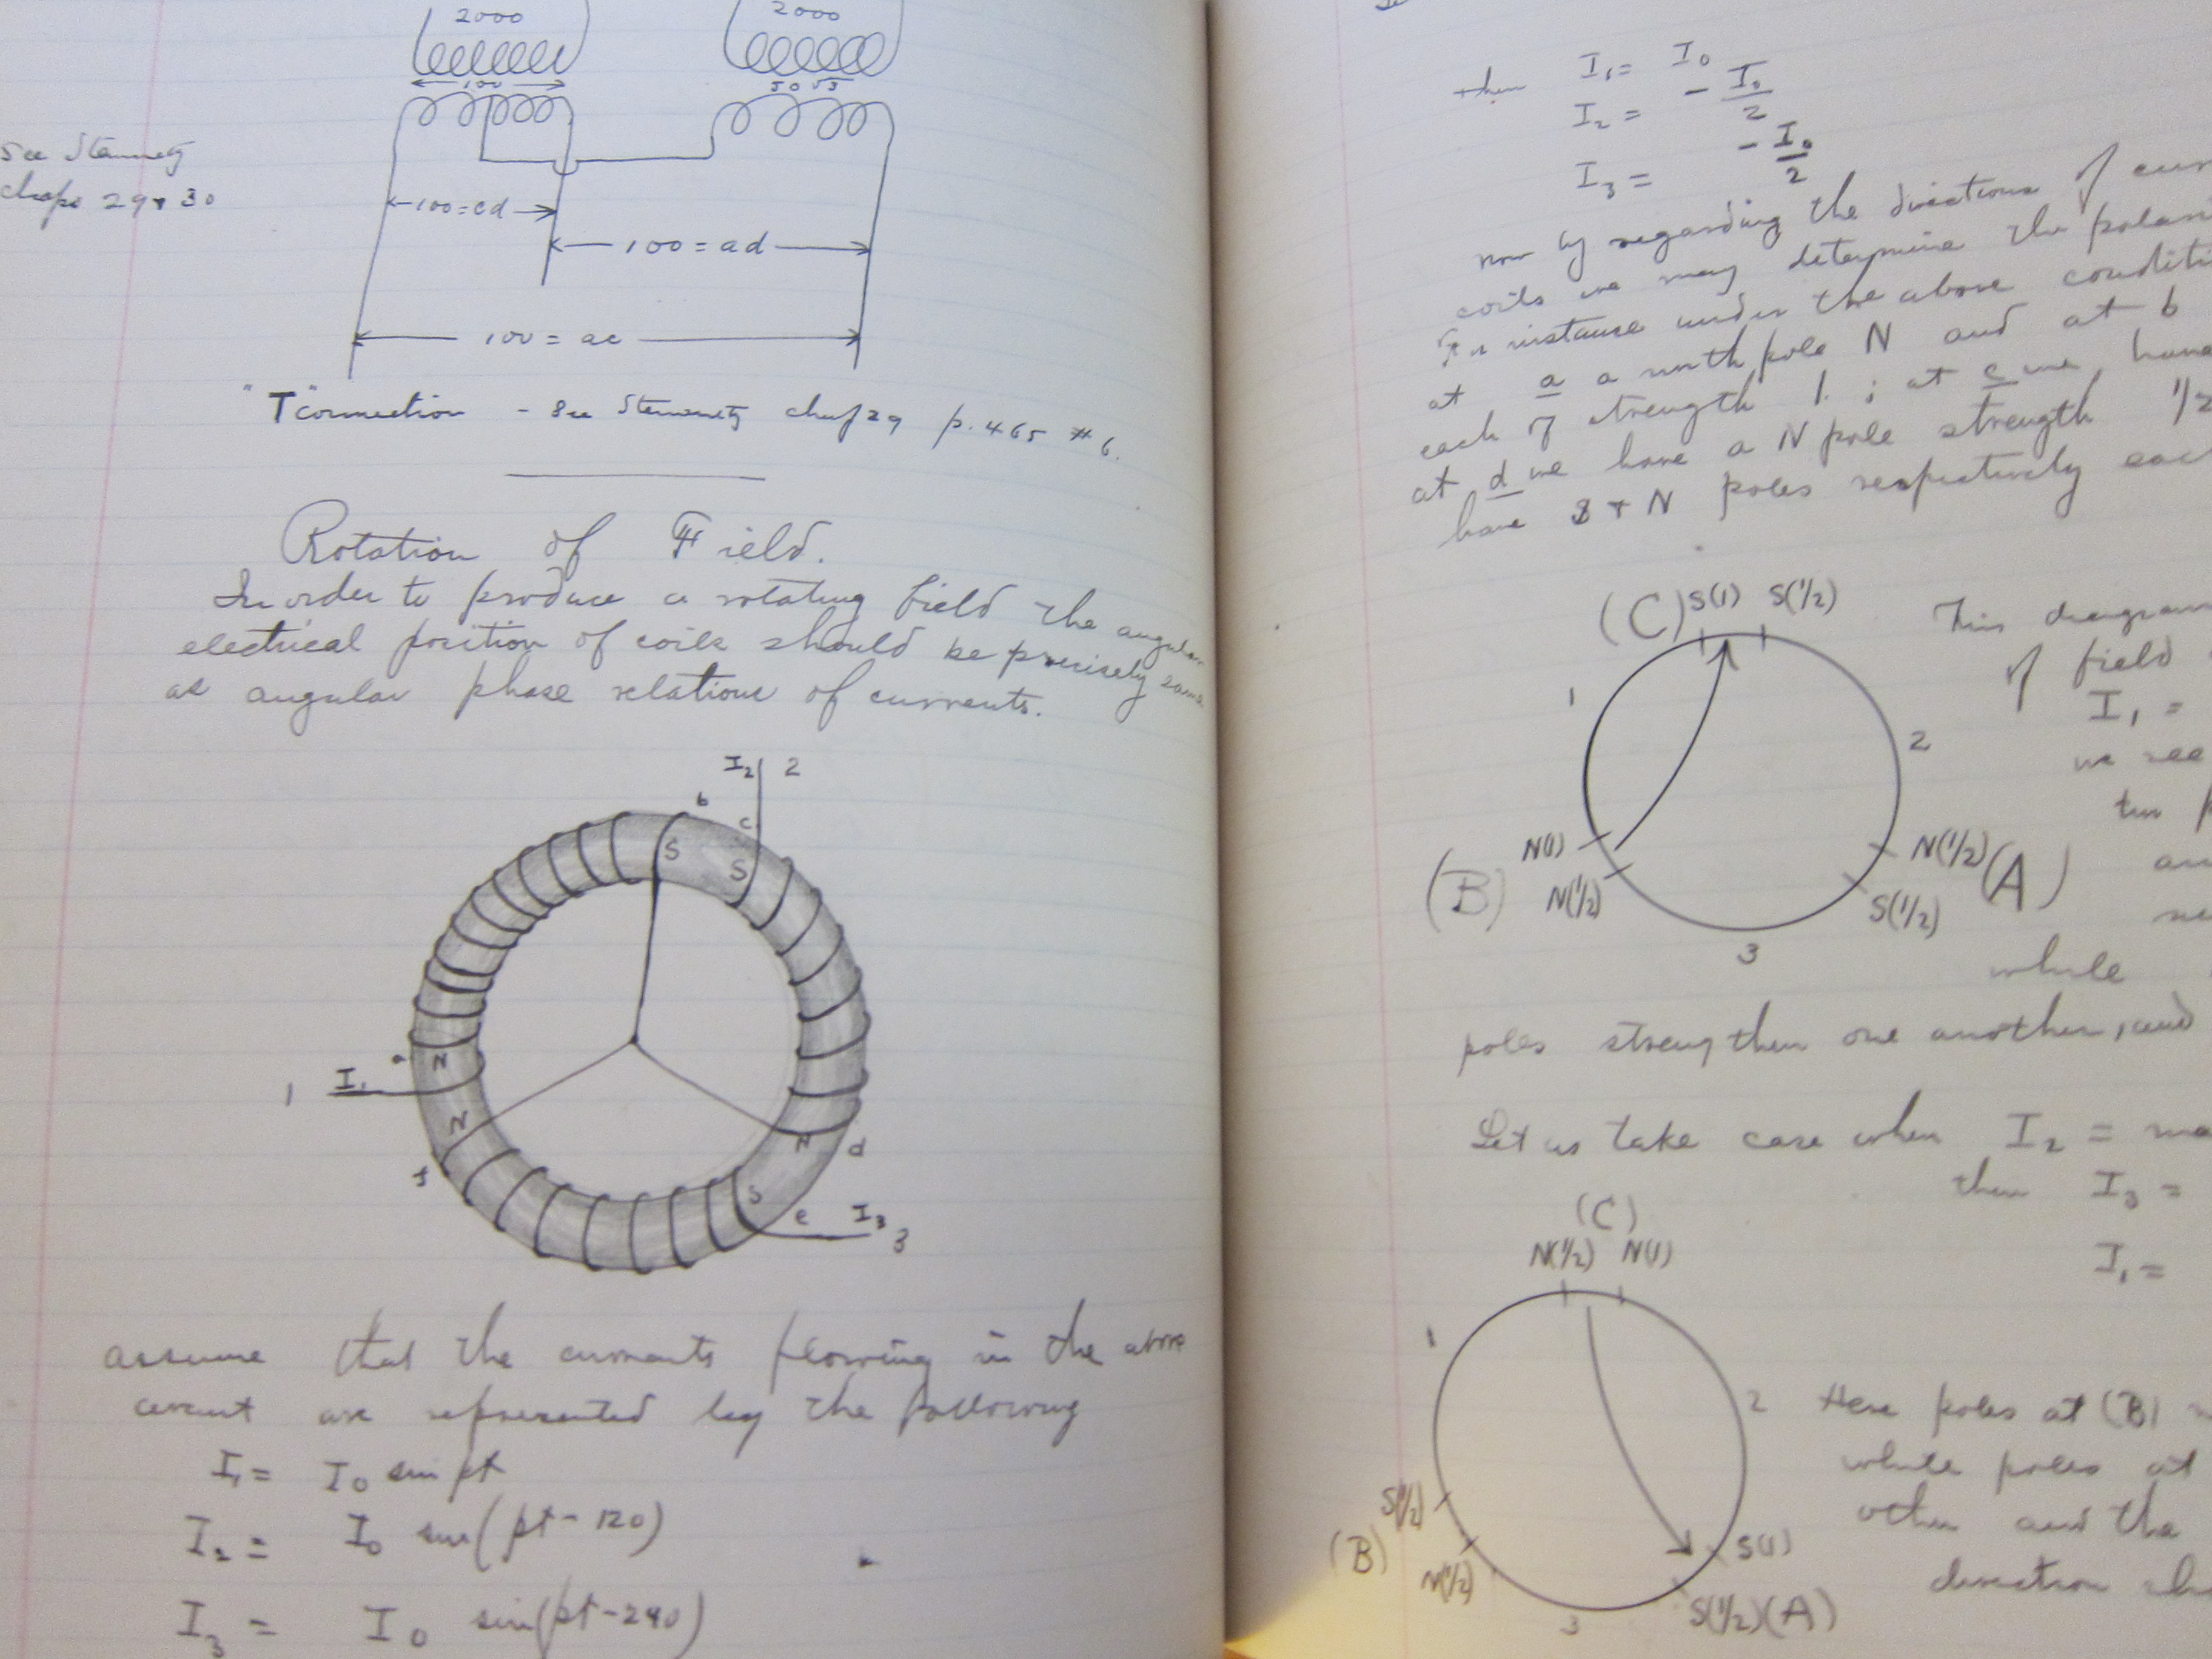 2000 2000
100 50√3
See Steinmetz
chaps 29 + 30
100=cd
100 = ad
100 = ac
"T" connection - See Steinmetz chap 29 p. 465 #6.
Rotation of Field.
In order to produce a rotating field the angular
electrical position of coils should be precisely same
as angular phase relations of currents.
I2 2
b
c
S
S
a N
1 I1
N
N d
f
S
e I3 3
assume that the currents flowing in the above
circuit are represented by the following
I1 = I0 sin pt
I2 = I0 sin(pt - 120)
I3 = I0 sin(pt - 240)
then I1 = I0
I2 = - I0/2
I3 = - I0/2
now by regarding the directions of
coils we may determine the
For instance under the above
at a a north pole N and at b
each of strength 1. ; at c we have
at d we have a N pole strength 1/2
have S + N poles respectively
(C) S(1) S(1/2)
This diagram
of field
1
I1 =
2
we see
N(1)
N(1/2) (A)
(B) N(1/2)
S(1/2)
3
while
poles strengthen one another, and
Let us take case when I2 =
then I3 =
(C)
N(1/2) N(1)
I1 =
1
2
Here poles at (B)
while poles at
S(1/2)
other and the
(B)
S(1)
N(1/2)
direction
S(1/2) (A)
3